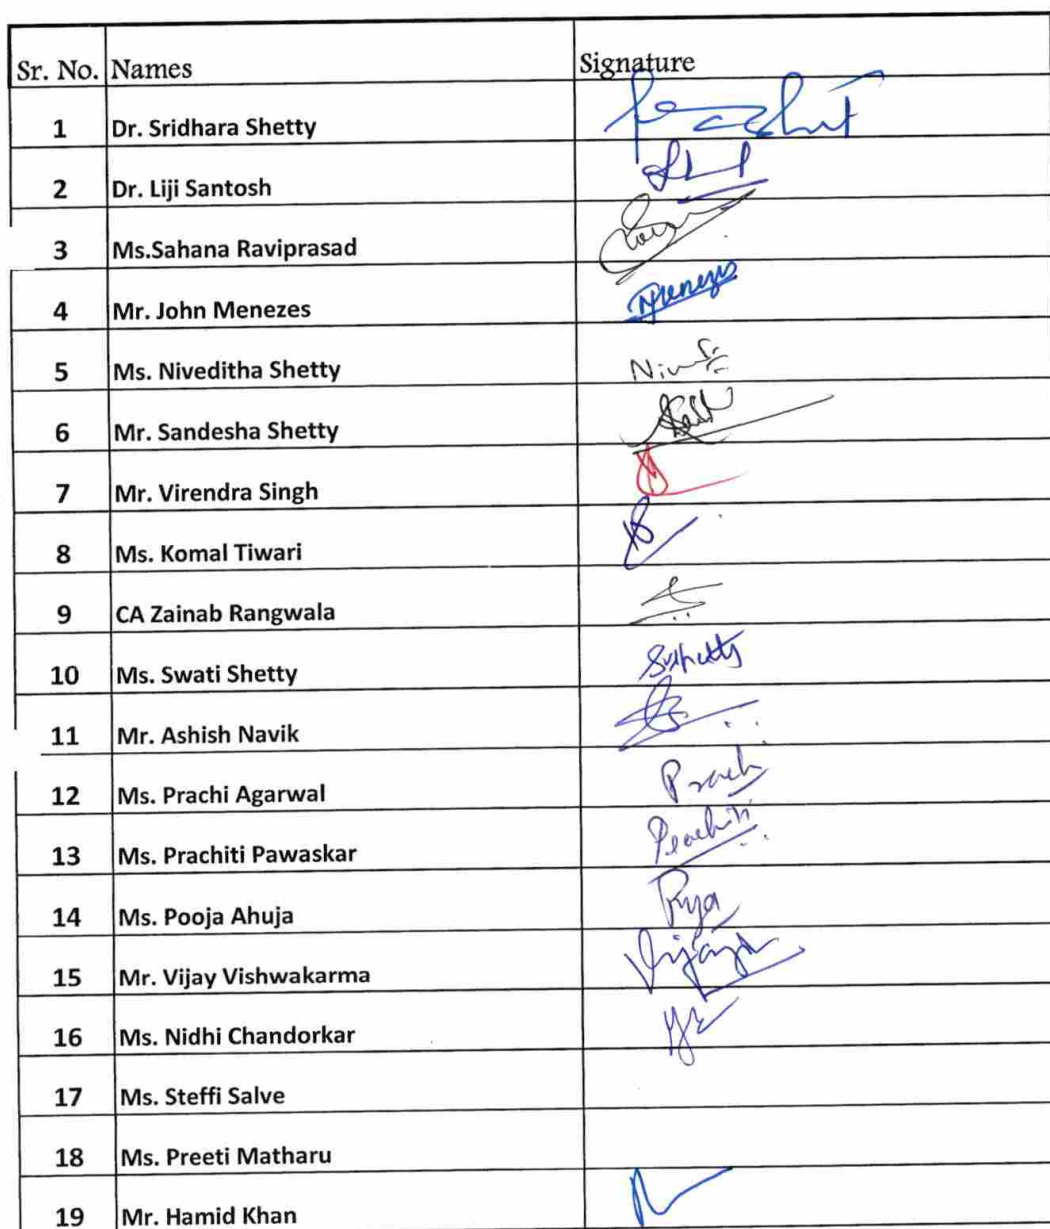 Sr. No. Names Signature
1 Dr. Sridhara Shetty
2 Dr. Liji Santosh
3 Ms.Sahana Raviprasad
4 Mr. John Menezes Menezes
5 Ms. Niveditha Shetty
6 Mr. Sandesha Shetty
7 Mr. Virendra Singh
8 Ms. Komal Tiwari
9 CA Zainab Rangwala
10 Ms. Swati Shetty
11 Mr. Ashish Navik
12 Ms. Prachi Agarwal
13 Ms. Prachiti Pawaskar Prachiti
14 Ms. Pooja Ahuja
15 Mr. Vijay Vishwakarma
16 Ms. Nidhi Chandorkar
17 Ms. Steffi Salve
18 Ms. Preeti Matharu
19 Mr. Hamid Khan